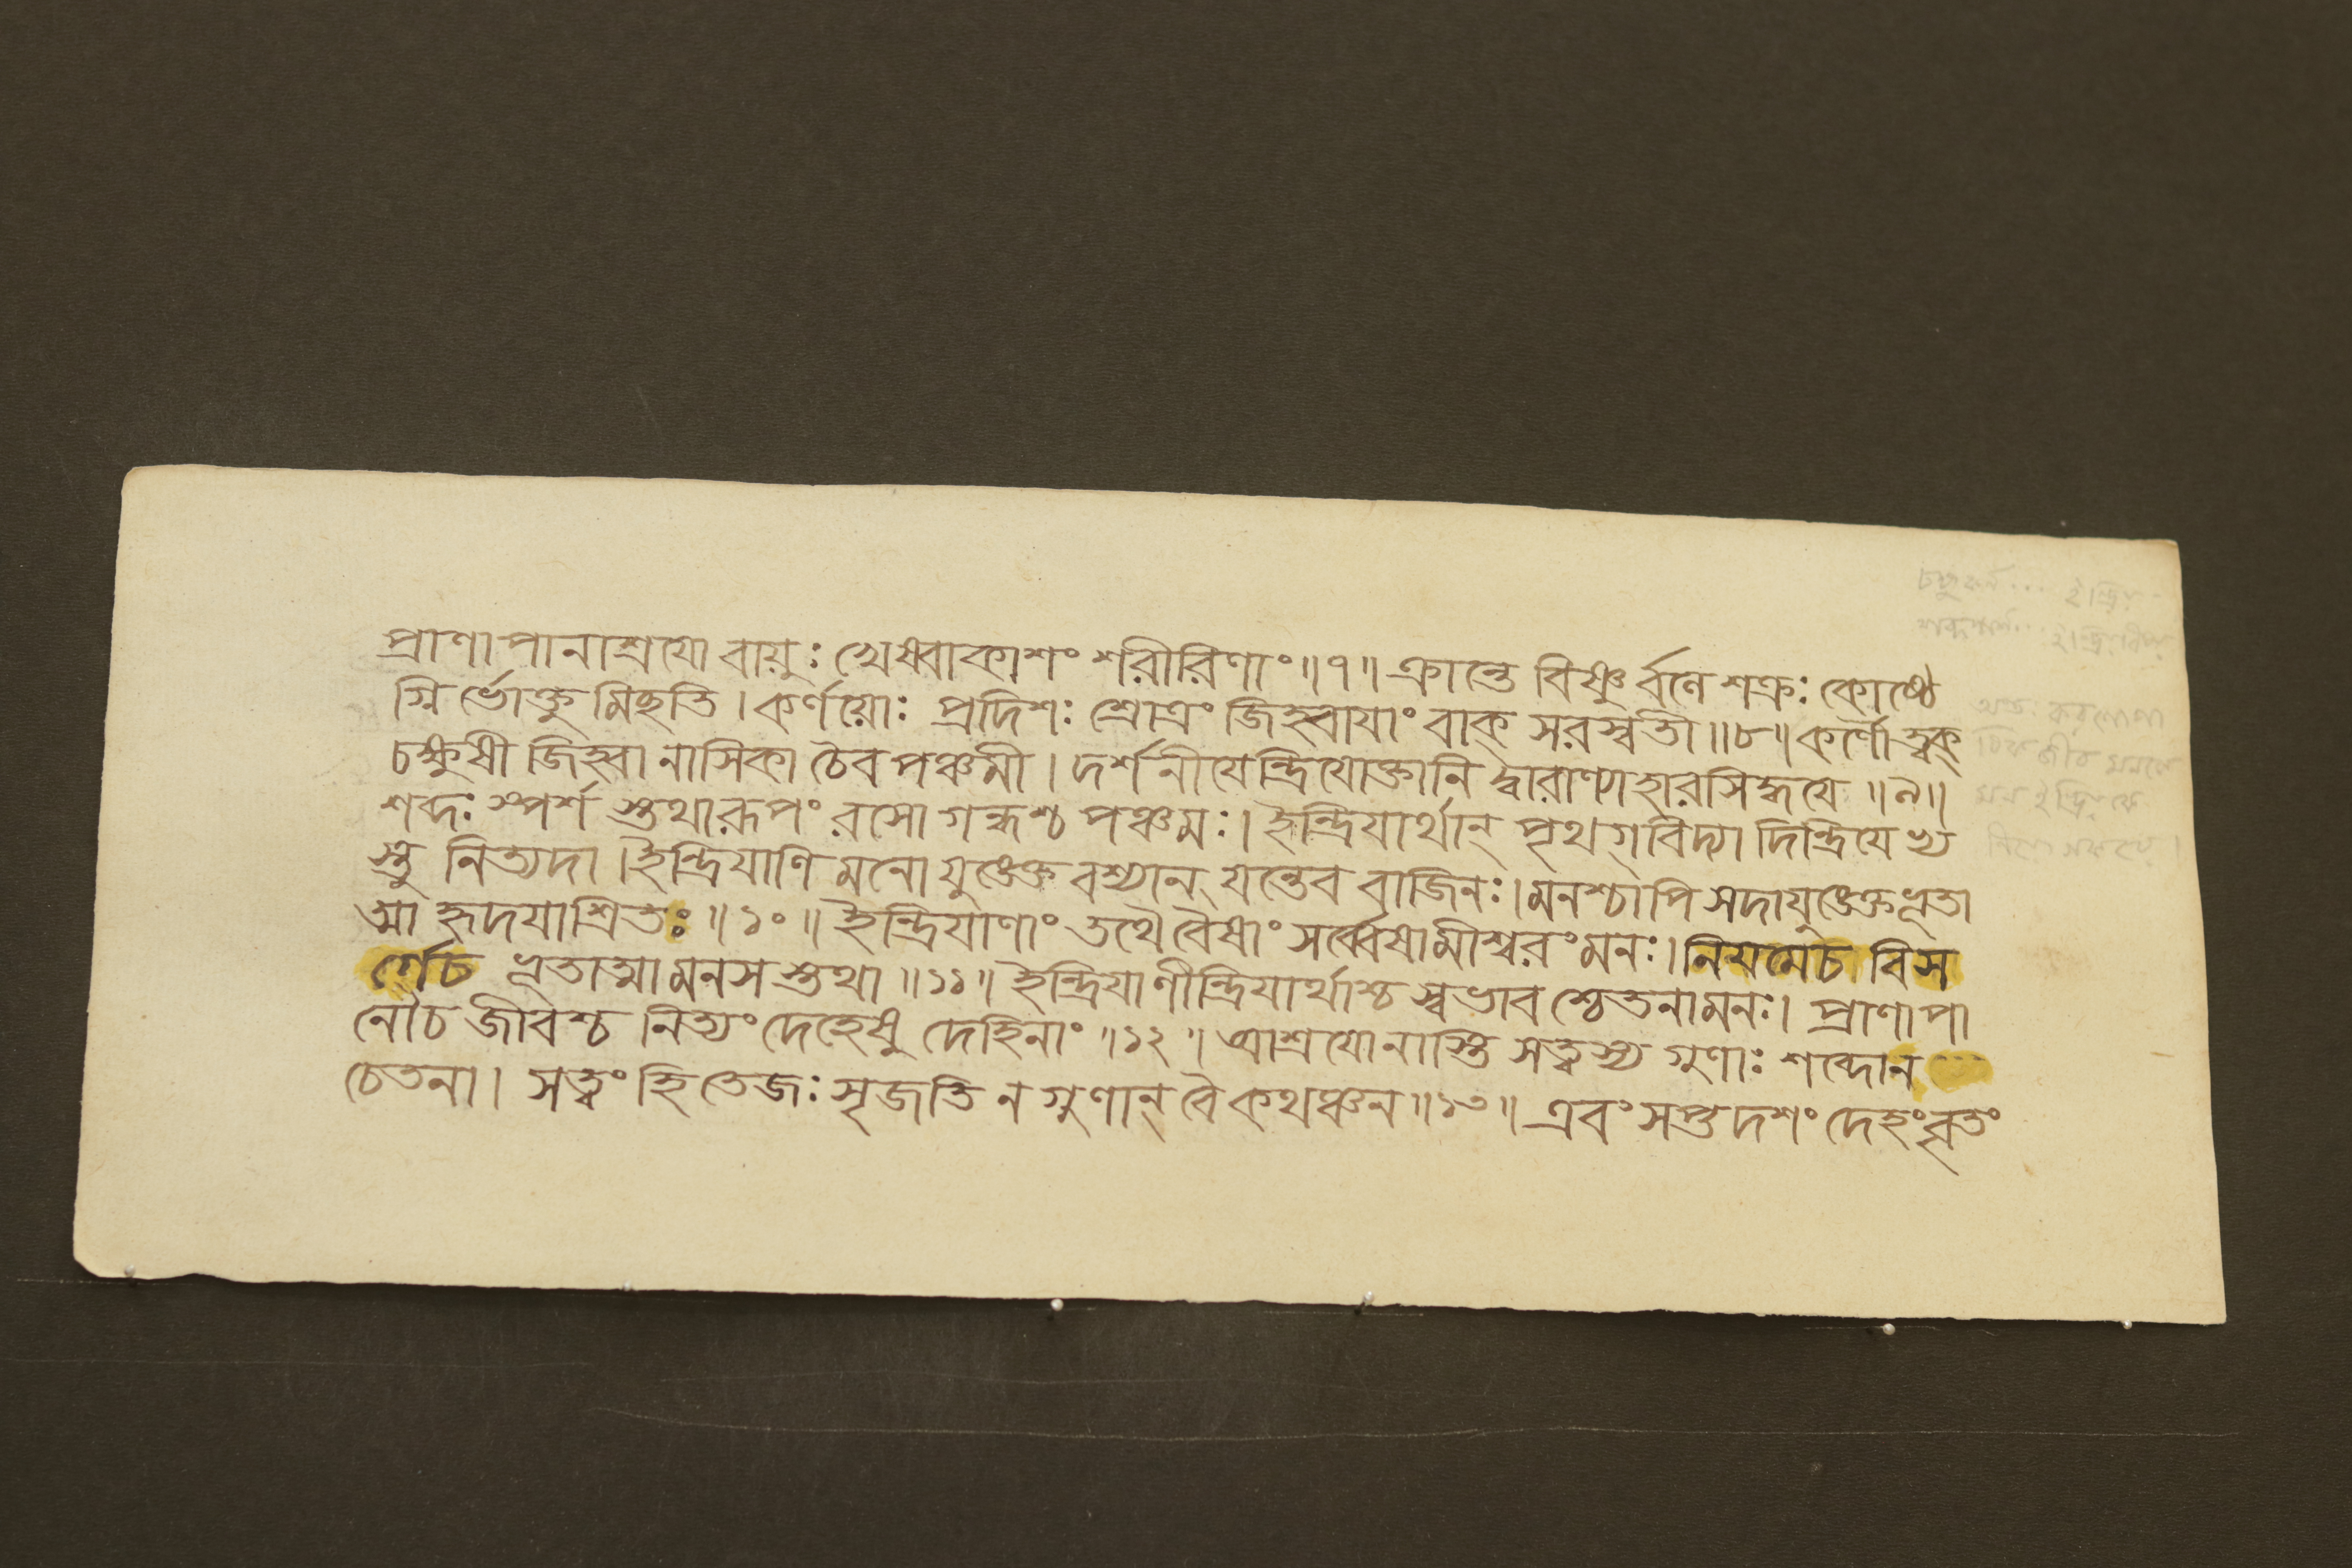 প্রাণাপানাশ্রযো বায়ুঃ খেষ্বাকাশং শরীরিণাং ॥৭॥ ক্রান্তে বিষ্ণুর্বলে শক্রঃ কোষ্ঠে
গ্নির্ভোক্তুমিহতি । কর্ণয়োঃ প্রদিশঃ শ্রোত্রং জিহ্বাযাং বাক্ সরস্বতী ॥৮॥ কর্ণৌ ত্বক্
চক্ষুষী জিহ্বা নাসিকা চৈব পঞ্চমী । দর্শনীযেন্দ্রিযোক্তানি দ্বারাণ্যাহারসিদ্ধযে ॥৯॥
শব্দঃ স্পর্শ স্তথারূপং রসো গন্ধশ্চ পঞ্চমঃ । ইন্দ্রিযার্থান্ পৃথগ্ বিদ্যা দিন্দ্রিযেভ্য
স্তু নিত্যদা । ইন্দ্রিযাণি মনো যুঙেক্ত বশ্যান্ যন্তেব বাজিনঃ । মনশ্চাপি সদাযুঙেক্ত ভূতা
ত্মা হৃদযাশ্রিতঃ ॥১০॥ ইন্দ্রিযাণাং তথৈবৈষাং সর্ব্বেষামীশ্বরং মনঃ । নিযমেচ বিস
র্গেচ ভূতাত্মা মনস স্তথা ॥১১॥ ইন্দ্রিযাণীন্দ্রিযার্থাশ্চ স্বভাব শ্চেতনামনঃ । প্রাণাপা
নৌচ জীবশ্চ নিত্যং দেহেষু দেহিনাং ॥১২॥ আশ্রযোনাস্তি সত্ত্বস্য গুণাঃ শব্দোন
চেতনা । সত্ত্বং হি তেজঃ সৃজতি ন গুণান্ বৈ কথঞ্চন ॥১৩॥ এবং সপ্তদশং দেহং বৃতং